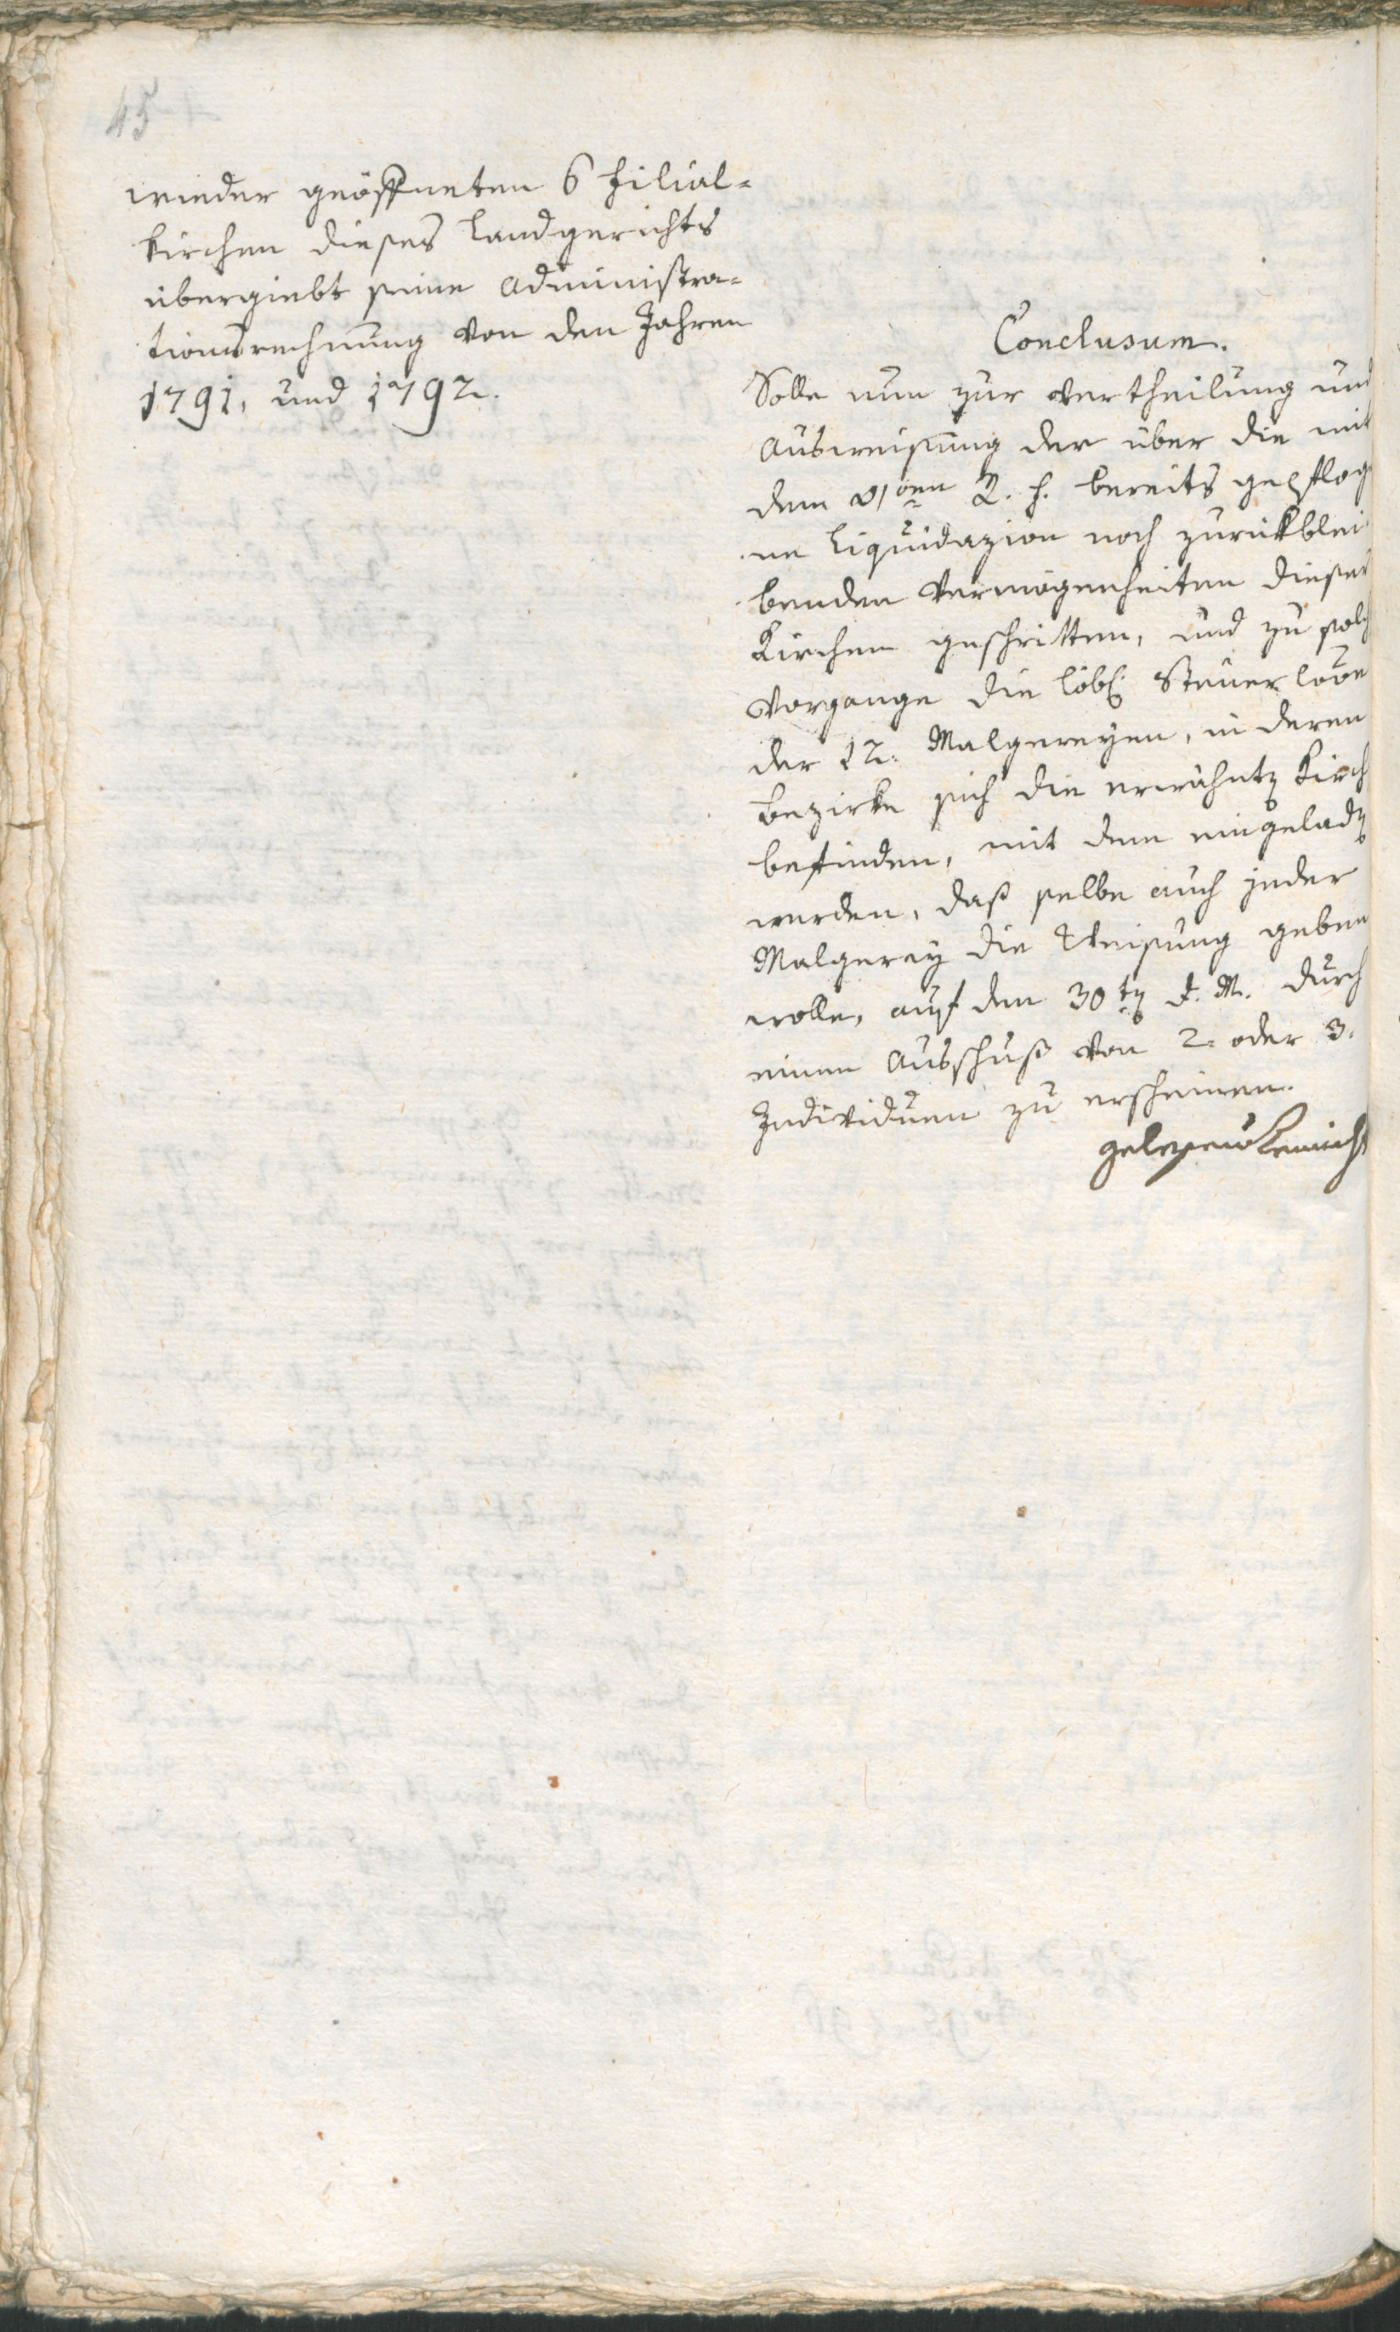 45
wieder geöffneten 6 Filial-
kirchen dieses Landgerichts
übergiebt seine Administra-
tionsrechnung von den Jahren
1791, und 1792.
Conclusum.
Solle nun zur Vertheilung und
Ausweisung der über die mit
dem bereits gepflog
ne Liquidazion noch zurükblei
benden Vermögenheiten dieser
Kirchen geschritten, und zu solch
Vorgange die löbl: Steuer
der 12. Malgereyen, in deren
Bezirke sich die erwähnte Kirch
befinden, mit dem eingelad
werden, daß selbe auch jeder
Malgerey die Weisung geben
wolle, auf den 30t d. M. durch
einen Ausschuß von 2. oder 3.
Individuen zu erscheinen.